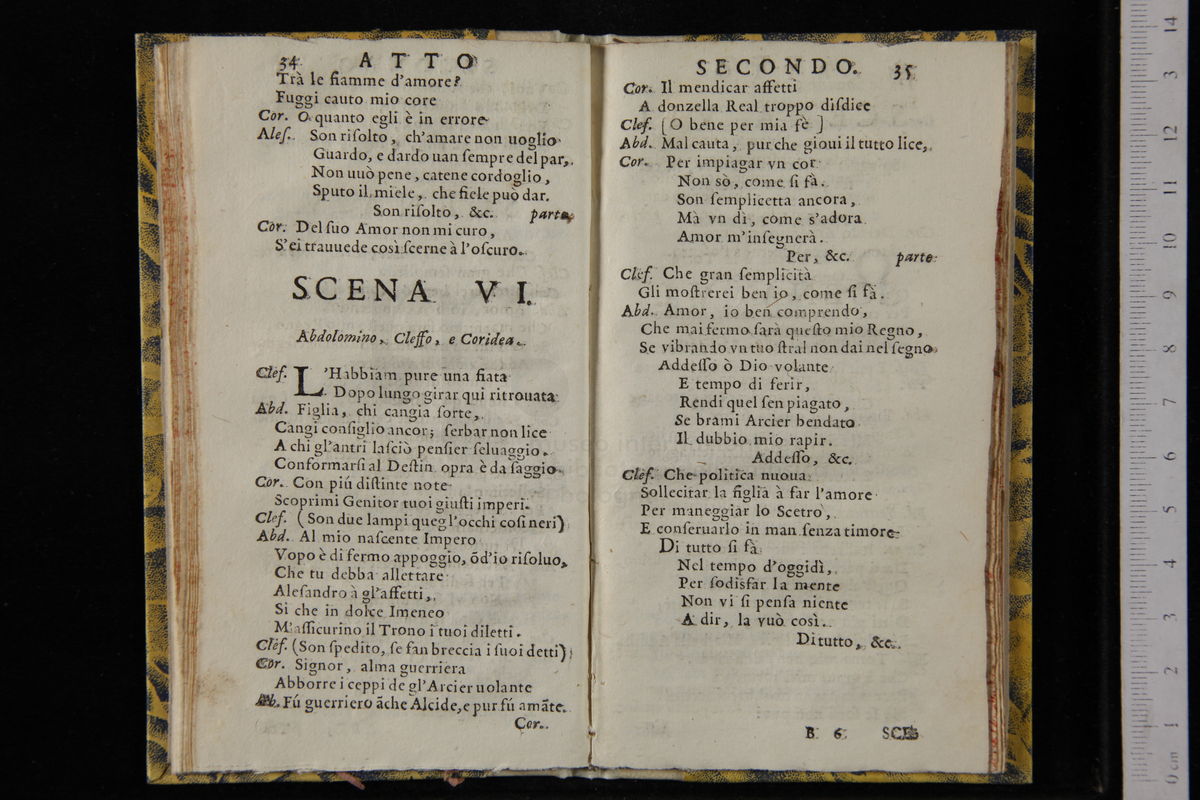 34 ATTO
Trà le fiamme d'amore?
Fuggi cauto mio core
Cor. O quanto egli è in errore
Ales. Son risolto, ch'amare non uoglio
Guardo, e dardo uan sempre del par,
Non uuò pene, catene cordoglio,
Sputo il miele, che fiele può dar.
Son risolto, &c. parte
Cor. Del suo Amor non mi curo,
S'ei trauuede così scerne à l'oscuro.
SCENA VI.
Abdolomino, Cleffo, e Coridea.
Clef. L'Habbiam pure una fiata
Dopo lungo girar qui ritrouata
Abd. Figlia, chi cangia sorte,
Cangi consiglio ancor; serbar non lice
A chi gl'antri lasciò pensier seluaggio.
Conformarsi al Destin opra è da saggio.
Cor. Con piú distinte note
Scoprimi Genitor tuoi giusti imperi.
Clef. (Son due lampi quegl'occhi cosi neri)
Abd. Al mio nascente Impero
Vopo è di fermo appoggio, õd'io risoluo,
Che tu debba allettare
Alesandro à gl'affetti,
Si che in dolce Imeneo
M'assicurino il Trono i tuoi diletti.
Clef. (Son spedito, se fan breccia i suoi detti)
Cor. Signor, alma guerriera
Abborre i ceppi de gl'Arcier uolante
Ab. Fú guerriero ãche Alcide, e pur fú amãte.
Cor.
SECONDO. 35
Cor. Il mendicar affetti
A donzella Real troppo disdice
Clef. [O bene per mia fè ]
Abd. Mal cauta, pur che gioui il tutto lice,
Cor. Per impiagar vn cor
Non sò, come si fà.
Son semplicetta ancora,
Mà vn dì, come s'adora
Amor m'insegnerà.
Per, &c. parte
Clef. Che gran semplicità
Gli mostrerei ben io, come si fà.
Abd. Amor, io ben comprendo,
Che mai fermo sarà questo mio Regno,
Se vibrando vn tuo stral non dai nel segno
Addesso ò Dio volante
E tempo di ferir,
Rendi quel sen piagato,
Se brami Arcier bendato
Il dubbio mio rapir.
Addesso, &c.
Clef. Che politica nuoua
Sollecitar la figlia à far l'amore
Per maneggiar lo Scetro,
E conseruarlo in man senza timore
Di tutto si fà
Nel tempo d'oggidì,
Per sodisfar la mente
Non vi si pensa niente
A dir, la vuò così.
Di tutto, &c.
B 6 SCE
14
3
12
11
10
9
8
7
6
5
4
3
2
1
0 cm